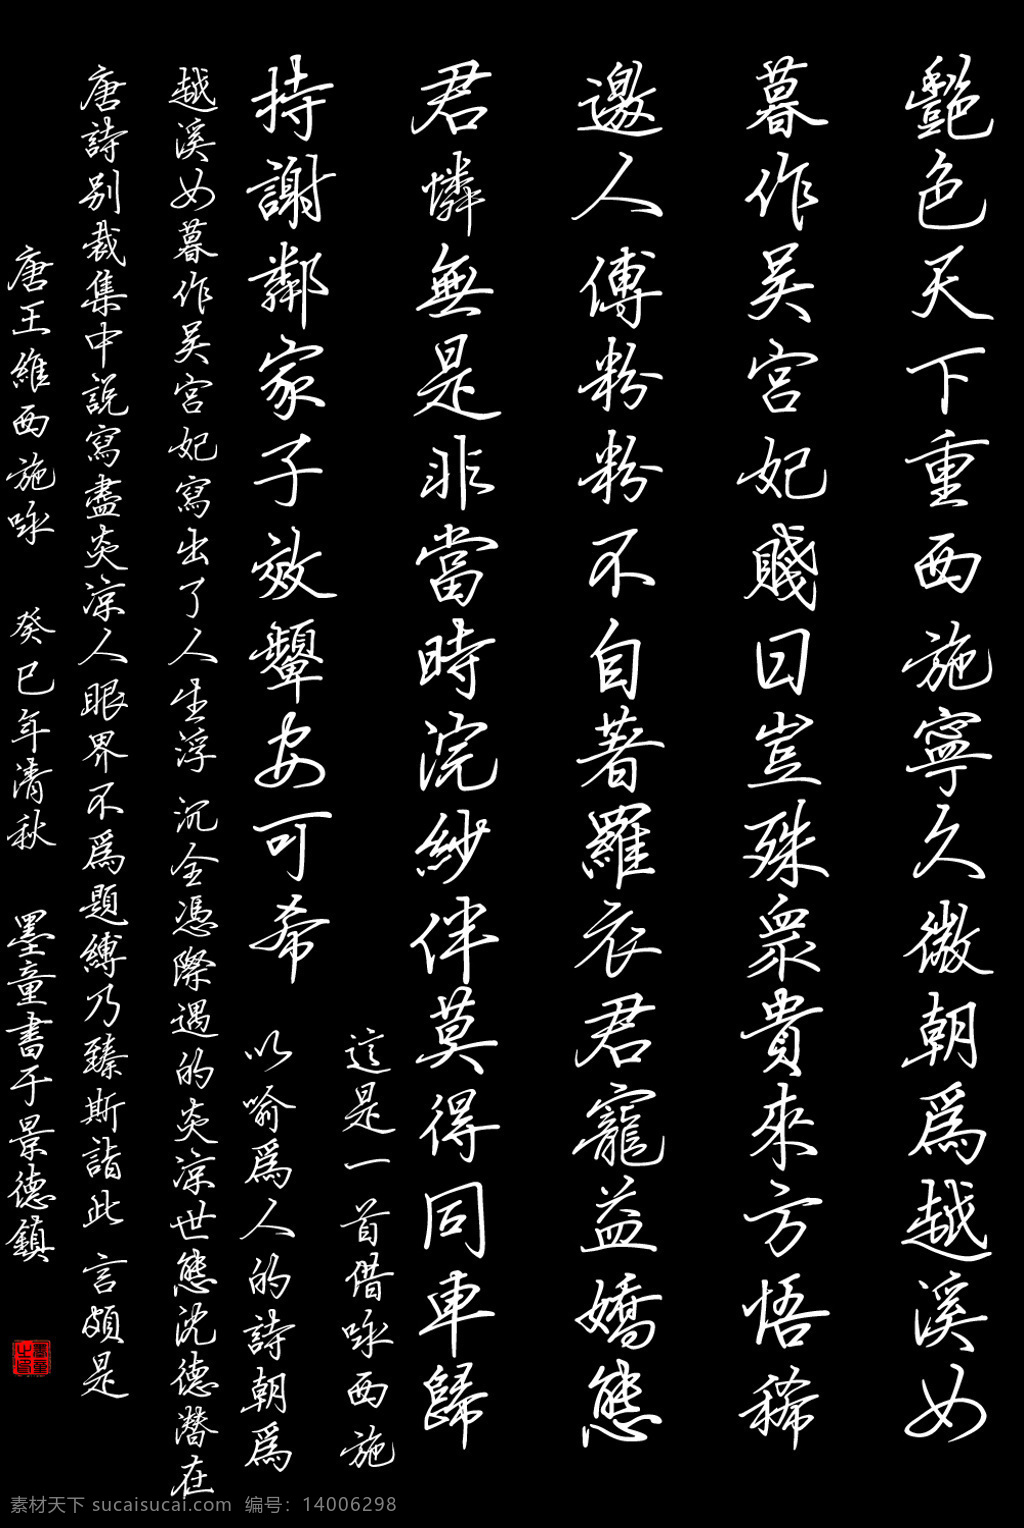 艷色天下重西施寧久微朝爲越溪女
暮作吴宫妃賤日豈殊衆貴來方悟稀
邀人傅粉粉不自著羅衣君寵益嬌態
君憐無是非當時浣紗伴莫得同車歸
持謝鄰家子效顰安可希
這是一首借咏西施
以喻爲人的詩朝爲
越溪女暮作吴宫妃寫出了人生浮沉全憑際遇的炎凉世態沈德潜在
唐詩别裁集中説寫盡炎凉人眼界不爲題縛乃臻斯詣此言頗是
唐王維西施咏 癸巳年清秋 墨童書于景德鎮
素材天下 sucaisucai.com 编号: 14006298